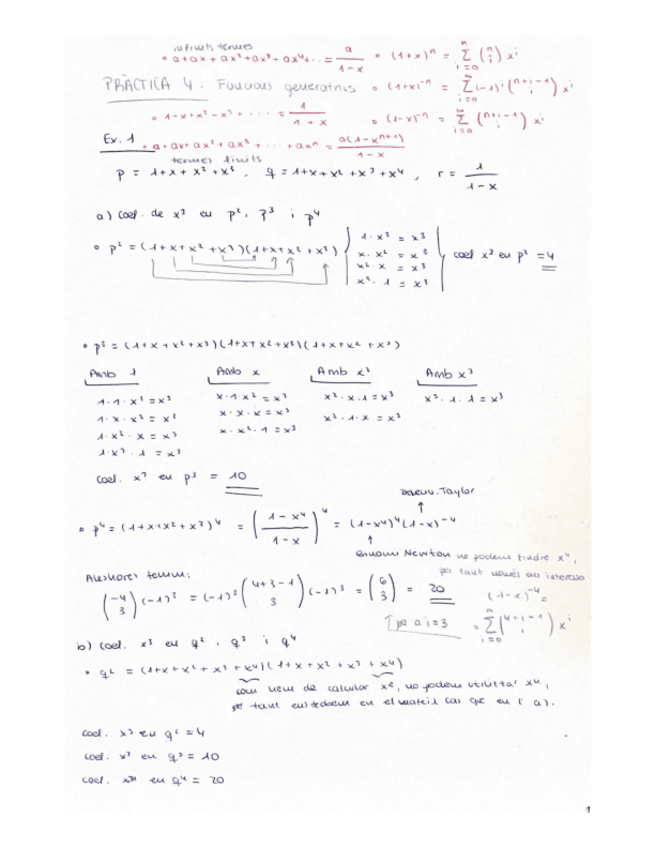 infinits termes
• a+ax+ax²+ax³+ax⁴+... = a/(1-x) • (1+x)ⁿ = Σ_{i=0}^{n} (n i) xⁱ
PRÀCTICA 4. Funcions generatrius • (1+x)⁻ⁿ = Σ_{i=0}^{∞} (-1)ⁱ (n+i-1 i) xⁱ
• 1-x+x²-x³+.... = 1/(1+x) • (1-x)⁻ⁿ = Σ_{i=0}^{∞} (n+i-1 i) xⁱ
Ex. 1 • a+ax+ax²+ax³+...+axⁿ = a(1-xⁿ⁺¹)/(1-x)
termes finits
p = 1+x+x²+x³, q = 1+x+x²+x³+x⁴, r = 1/(1-x)
a) Coef. de x³ en p², p³ i p⁴
• p² = (1+x+x²+x³)(1+x+x²+x³) { 1·x³ = x³
x·x² = x³
x²·x = x³
x³·1 = x³ } coef x³ en p² = 4
• p³ = (1+x+x²+x³)(1+x+x²+x³)(1+x+x²+x³)
Amb 1 Amb x Amb x² Amb x³
1·1·x³ = x³ x·1·x² = x³ x²·x·1 = x³ x³·1·1 = x³
1·x·x² = x³ x·x·x = x³ x²·1·x = x³
1·x²·x = x³ x·x²·1 = x³
1·x³·1 = x³
Coef. x³ en p³ = 10
Taylor
• p⁴ = (1+x+x²+x³)⁴ = ((1-x⁴)/(1-x))⁴ = (1-x⁴)⁴(1-x)⁻⁴
Binomi Newton no podem tindre x⁴,
per tant només ens interessa
Aleshores tenim:
(1-x)⁻⁴ =
(-4 3)(-1)³ = (-1)³ (4+3-1 3)(-1)³ = (6 3) = 20
per a i=3 = Σ_{i=0}^{∞} (4+i-1 i) xⁱ
b) Coef. x³ en q², q³ i q⁴
• q² = (1+x+x²+x³+x⁴)(1+x+x²+x³+x⁴)
com hem de calcular x³, no podem utilitzar x⁴,
per tant ens quedem en el mateix cas que en l'a).
coef. x³ en q² = 4
coef. x³ en q³ = 10
coef. x³ en q⁴ = 20
1